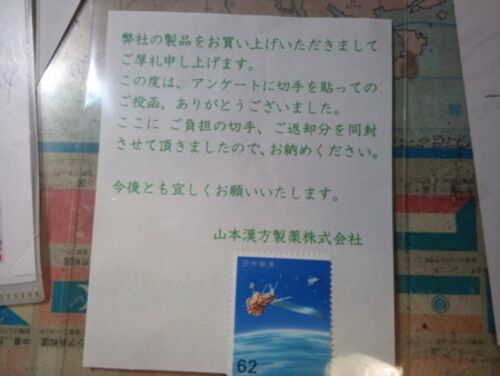 弊社の製品をお買い上げいただきまして
ご厚礼申し上げます。
この度は、アンケートに切手を貼っての
ご投函、ありがとうございました。
ここに ご負担の切手、ご返却分を同封
させて頂きましたので、お納めください。
今後とも宜しくお願いいたします。
山本漢方製薬株式会社
日本郵便
62